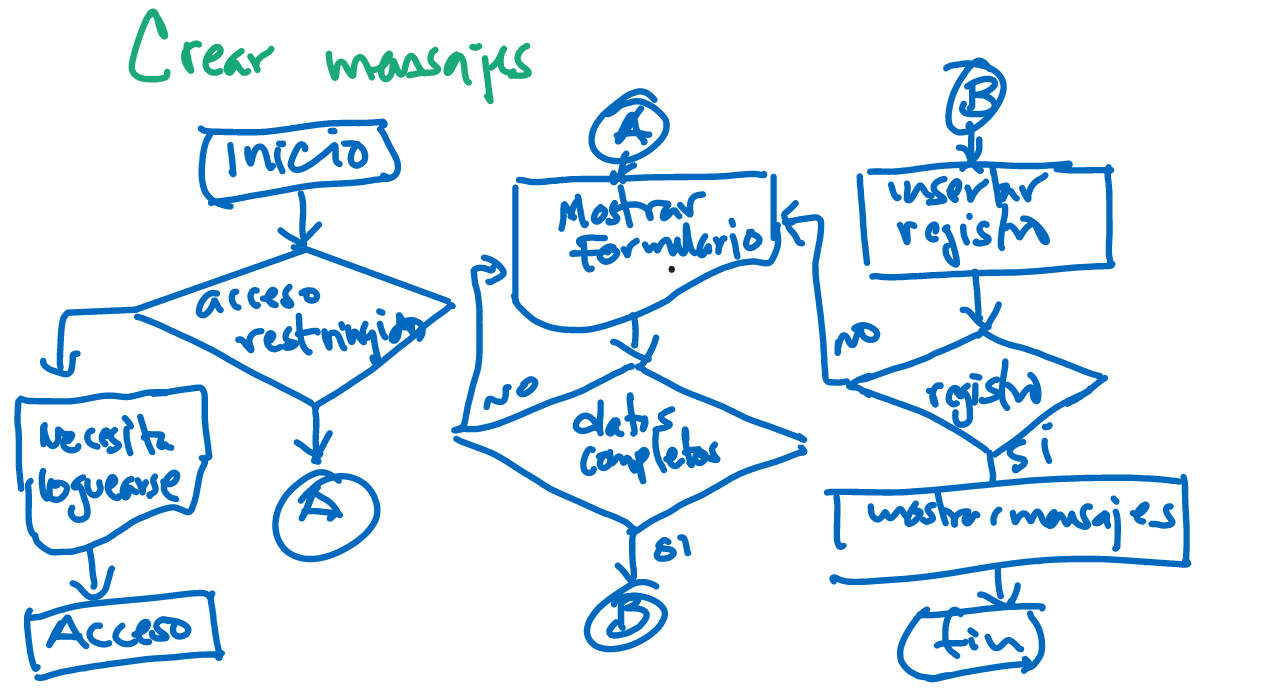 Crear mensajes
Inicio
acceso
restringido
Necesita
loguearse
Acceso
A
A
Mostrar
Formulario
NO
datos
completos
si
B
B
insertar
registro
NO
registro
si
mostrar mensajes
fin